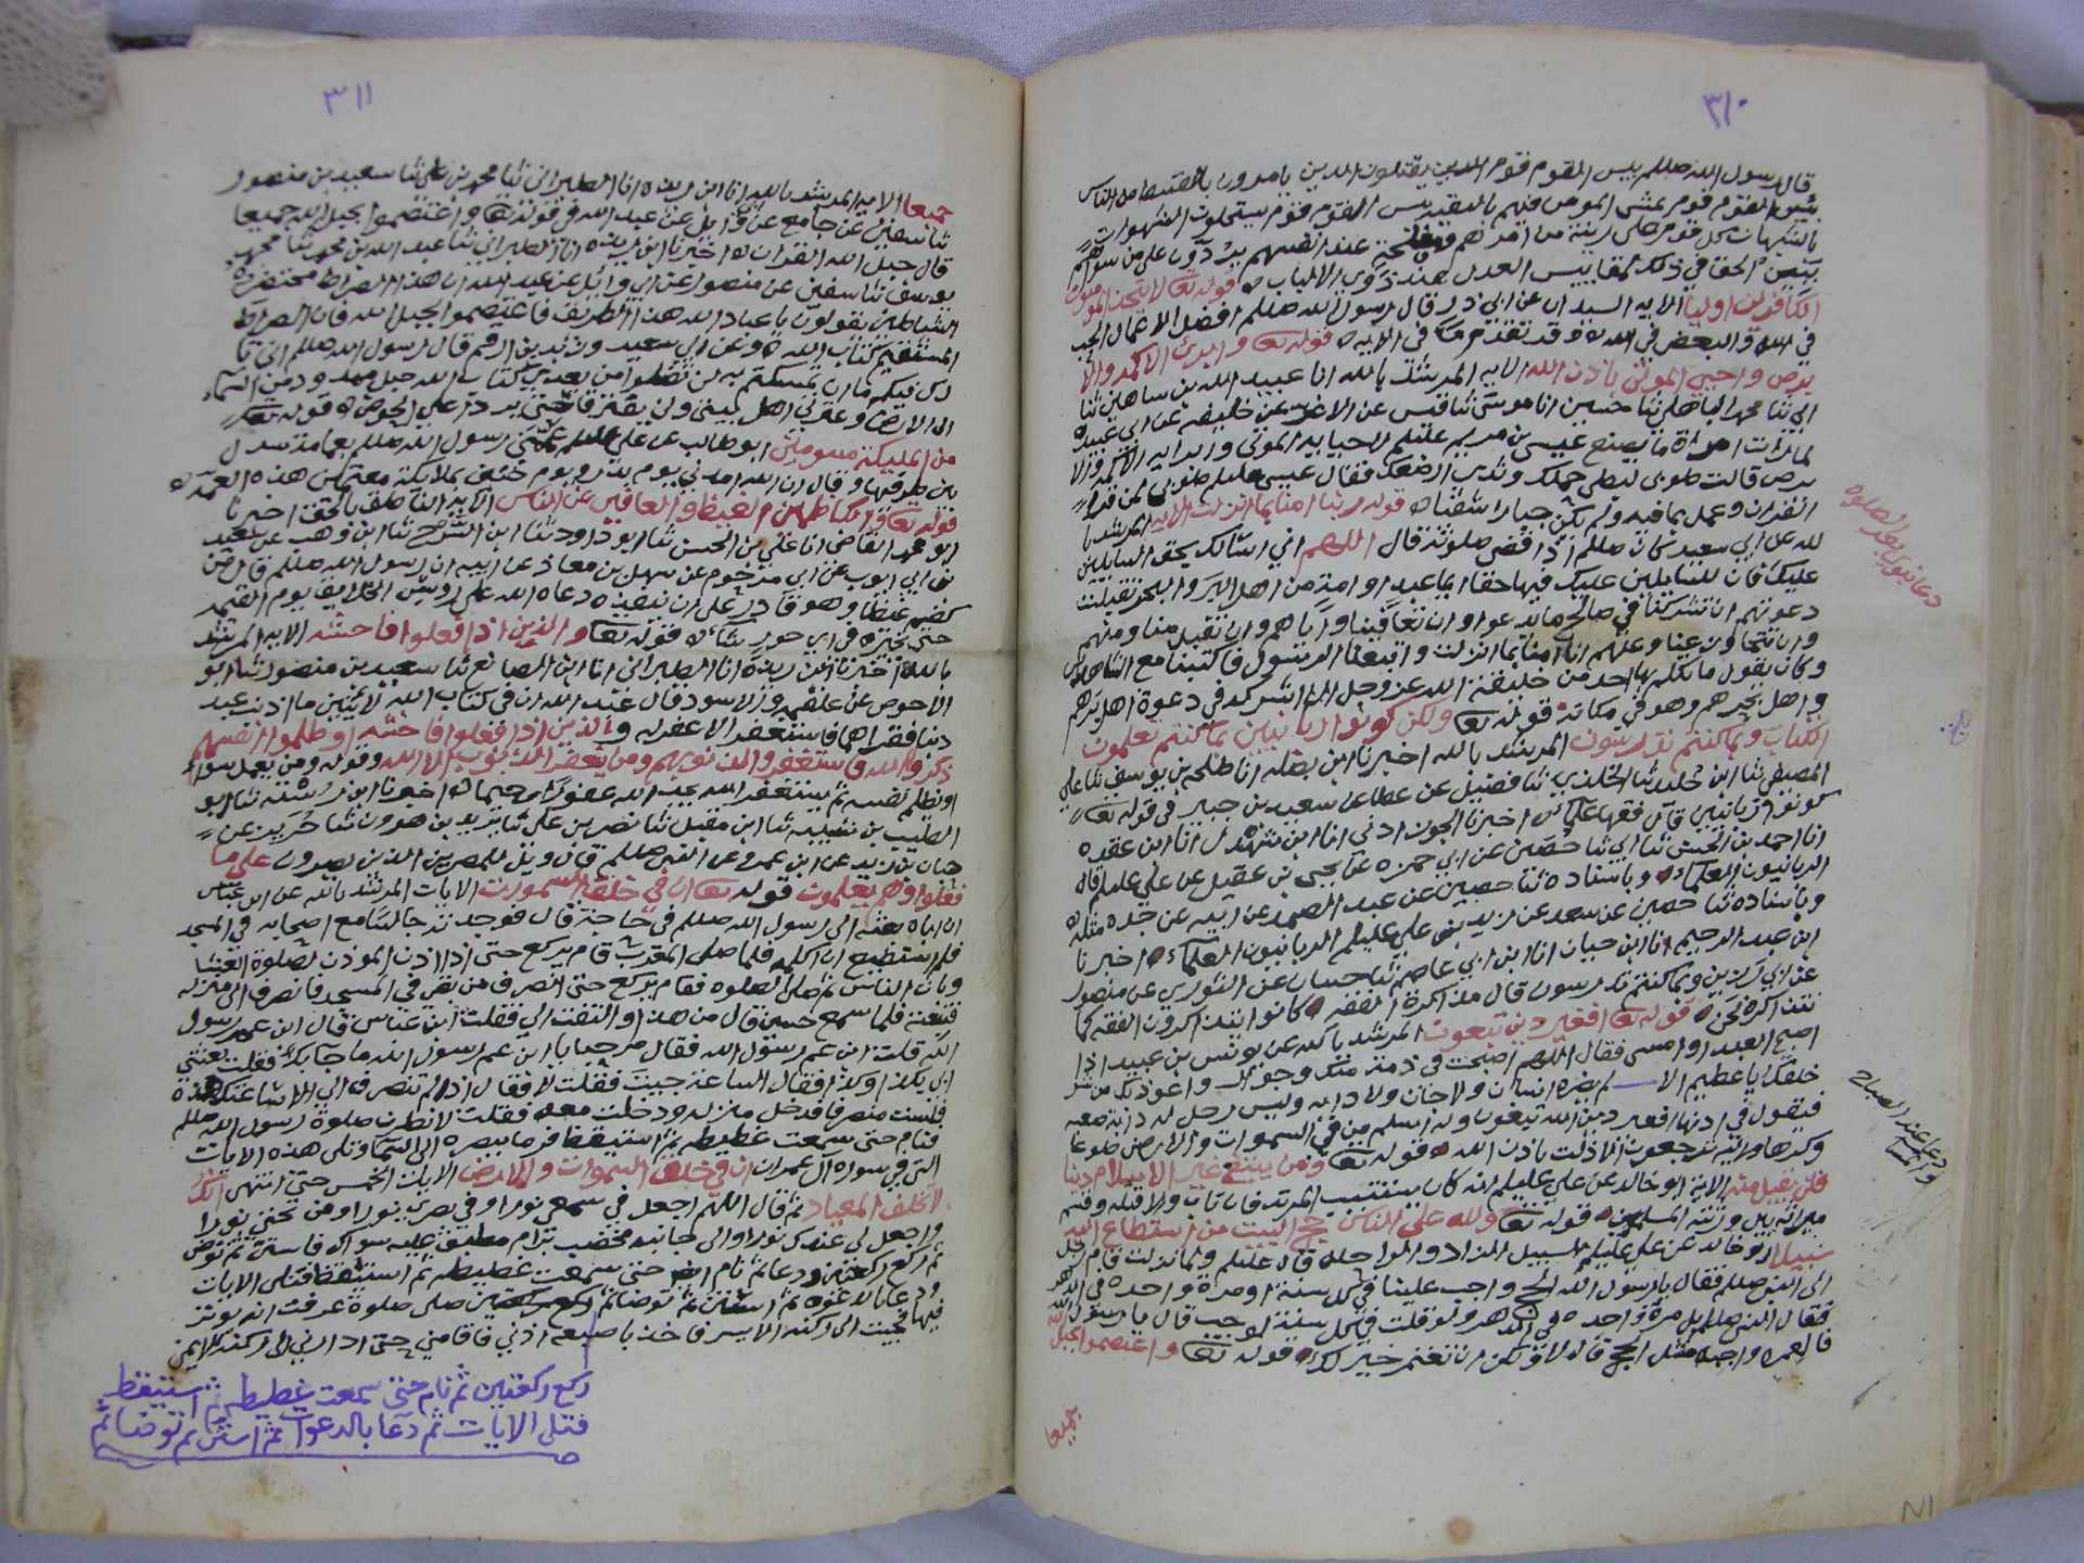 ٣١٠
قال رسول الله صللم بيس القوم قوم الذين يقتلون الذين يامرون بالقسط من الناس
بيس القوم قوم يمشي المومن فيهم بالتقيه بيس القوم قوم يستحلون الشهوات
بالشبهات كل قوم على زينة من امرهم وفلحة عند انفسهم يزرون على من سواهم
يتبين الحق في ذلك بمقاييس العدل عند ذوي الالباب ه قوله تعا لا يتخذ المومنون
الكافرين اوليا الايه السيدان عن ابي ذر قال رسول الله صللم افضل الاعمال الحب
في الله والبغض في الله ه وقد تقدم في الايه ه قوله تعا وابرئ الاكمه والا
برص واحيي الموتى باذن الله الايه المرشد بالله انا عبيد الله بن شاهين ثنا
ابي ثنا محمد الباهلي ثنا حسين انا موسى ثنا قيس عن الاغر عن خليفه عن ابي عبيدة
لما رات امراة ما يصنع عيسى بن مريم عليلم لاحيايه الموتى وابرايه الاكمه والا
برص قالت طوبى لبطن حملك وثدي ارضعك فقال عيسى عليلم طوبى لمن قرا
القران وعمل بما فيه ولم يكن جبارا شقيا ه قوله ربنا امنا بما انزلت الايه المرشد با
لله عن ابي سعيد كان صللم اذا قضى صلوته قال اللهم اني اسالك بحق السايلين
عليك فان للسايلين عليك فيها حقا ايما عبد او امة من اهل البر والبحر تقبلت
دعوتهم ان تشركنا في صالح ما يدعوا وان تعافينا واياهم وان تقبل منا ومنهم
وان تتجاوز عنا وعنهم انا امنا بما انزلت واتبعنا الرسول فاكتبنا مع الشاهدين
وكان يقول ما تكلم بها احد من خليقة الله عزوجل الا اشركه في دعوة اهل برهم
واهل بحرهم وهو في مكانه قوله تعا ولكن كونوا ربانيين بما كنتم تعلمون
الكتاب وبما كنتم تدرسون المرشد بالله اخبرنا ابن بطله انا طلحه بن يوسف ثنا علي
المصيصي ثنا ابن خلد ثنا الخلدي ثنا فضيل عن عطا عن سعيد بن جبير في قوله تعا
كونوا ربانيين قال فقها علما ه اخبرنا الجوزداني انا ابن شهدل انا ابن عقده
انا احمد بن الحسن ثنا ابي ثنا حصين عن ابي حمزه عن يحيى بن عقيل عن علي عليلم قال
الربانيون العلماء وباسناده ثنا حصين عن عبد الصمد عن ابيه عن جده مثله
وباسناده ثنا حصين عن سعد عن زيد بن علي عليلم الربانيون العلماء اخبرنا
ابن عبد الرحيم انا ابن حبان انا ابن ابي عاصم ثنا حسان عن الثوري عن منصور
عن ابي رزين وبما كنتم تدرسون قال مذاكرة الفقه كانوا يتذاكرون الفقه كما
نتذاكره نحن قوله تعا افغير دين تبغون المرشد بالله عن يونس بن عبيد اذا
اصبح العبد او امسى فقال اللهم اصبحت في ذمتك وجوارك واعوذ بك من شر
خلقك يا عظيم الا لم يضره انسان ولا جان ولا دابه وليس رجل له دابة صعبه
فيقول في اذنها افغير دين الله تبغون وله اسلم من في السموات والارض طوعا
وكرها واليه ترجعون الا ذلت باذن الله قوله تعا ومن يبتغ غير الاسلام دينا
فلن يقبل منه الايه ابو خالد عن علي عليلم انه كان يستتيب المرتد فان تاب والا قتله وقسم
ميراثه بين ورثته المسلمين قوله تعا ولله على الناس حج البيت من استطاع اليه
سبيلا ابو خالد عن علي عليلم السبيل الزاد والراحله قال عليلم ولما نزلت قام رجل
الى النبي صللم فقال يا رسول الله الحج واجب علينا في كل سنة او مرة واحده في الدهر
فقال النبي صللم بل مرة واحده في الدهر ولو قلت في كل سنة لوجب قال يا رسول الله
فالعمره واجبه مثل الحج قال لا ولكن ان تعتمر خير لك قوله تعا واعتصموا بحبل الله
جميعا
دعا نبوي بعد الصلوه
دعا عند الصباح
والمسا
٣١١
جميعا الايه المرشد بالله انا ابن ريذه انا الطبراني ثنا محمد بن علي ثنا سعيد بن منصور
ثنا سفين عن جامع عن ابي وايل عن عبد الله في قوله تعا واعتصموا بحبل الله جميعا
قال حبل الله القران ه اخبرنا ابن ريذه انا الطبراني ثنا عبد الله بن محمد ثنا محمد بن
يوسف ثنا سفين عن منصور عن ابي وايل عن عبد الله ان هذا الصراط محتضره
الشياطين يقولون يا عباد الله هذا الطريق فاعتصموا بحبل الله فان الصراط
المستقيم كتاب الله ه وعن ابي سعيد وزيد بن ارقم قال رسول الله صللم اني تا
رك فيكم ما ان تمسكتم به لن تضلوا من بعدي كتاب الله حبل ممدود من السماء
الى الارض وعترتي اهل بيتي ولن يفترقا حتى يردا علي الحوض ه قوله تعا
من المليكة مسومين ابو طالب عن علي عليلم عممني رسول الله صللم بعمامة سدل
بين طرفيها وقال ان الله امدني يوم بدر ويوم حنين بملايكة معتمين هذه العمة ه
قوله تعا والكاظمين الغيظ والعافين عن الناس الايه الناطق بالحق اخبرنا
ابو محمد القاضي انا علي بن الحسن ثنا ابو داود ثنا ابن السرح ثنا ابن وهب عن سعيد
بن ابي ايوب عن ابي مرحوم عن سهل بن معاذ عن ابيه ان رسول الله صللم قال من
كضم غيظا وهو قادر على ان ينفذه دعاه الله على رؤس الخلايق يوم القيمه
حتى يخيره في اي حور شاء ه قوله تعا والذين اذا فعلوا فاحشه الايه المرشد
بالله اخبرنا ابن ريذه انا الطبراني انا ابن الصانع ثنا سعيد بن منصور ثنا ابو
الاحوص عن علقمه والاسود قال عبد الله ان في كتاب الله لايتين ما اذنب عبد
ذنبا فقراهما فاستغفر الا غفر له والذين اذا فعلوا فاحشه او ظلموا انفسهم
ذكروا الله فاستغفروا لذنوبهم ومن يغفر الذنوب الا الله وقوله ومن يعمل سوا
او يظلم نفسه ثم يستغفر الله يجد الله غفورا رحيما ه اخبرنا ابن رسته ثنا ابو
الطيب بن شيبه ثنا ابن مقبل ثنا نصر بن علي ثنا يزيد بن هرون ثنا حريز عن
حبان بن زيد عن ابن عمرو عن النبي صللم قال ويل للمصرين الذين يصرون على ما
فعلوا وهم يعلمون قوله تعا ان في خلق السموات الايات المرشد بالله عن ابن عباس
ان اباه بعثه الى رسول الله صللم في حاجة قال فوجدته جالسا مع اصحابه في المسجد
فلم استطيع ان اكلمه فلما صلى المغرب قام يركع حتى اذا اذن الموذن لصلوة العشا
وثاب الناس ثم صلى الصلوه فقام يركع حتى انصرف من بقي في المسجد فانصرف الى منزله
فتبعته فلما سمع حسي قال من هذا والتفت الي فقلت ابن عباس قال ابن عم رسول
الله قلت ابن عم رسول الله فقال مرحبا بابن عم رسول الله ما جا بك فقلت بعثني
ابي بكذا وكذا فقال الساعة جيت فقلت لا فقال اذا لم تنصرف الي الا ساعتك هذه
فلست منصرفا فدخل منزله ودخلت معه فقلت لانظرن صلوة رسول الله صللم
فنام حتى سمعت غطيطه ثم استيقظ فرما ببصره الى السما وتلى هذه الايات
التي في سورة آل عمران ان في خلق السموات والارض الايات الخمس حتى انتهى انك
لا تخلف الميعاد ثم قال اللهم اجعل في سمعي نورا وفي بصري نورا ومن تحتي نورا
واجعل لي عندك نورا والى جانبه مخضب برام مطبق عليه سواك فاستن ثم توضى
ثم ركع ركعتين ودعا ثم نام حتى سمعت غطيطه ثم استيقظ فتلى الايات
ودعا بالدعوه ثم استن ثم توضا ثم ركع ركعتين صلى صلوة عرفت انه يوتر
فيها فجيت الى ركنه الايسر فاخذ باصبعه اذني فاقامني حتى ادارني الى ركنه الايمن
ركع ركعتين ثم نام حتى سمعت غطيطه ثم استيقظ
فتلى الايات ثم دعا بالدعوات ثم استن ثم توضا ثم